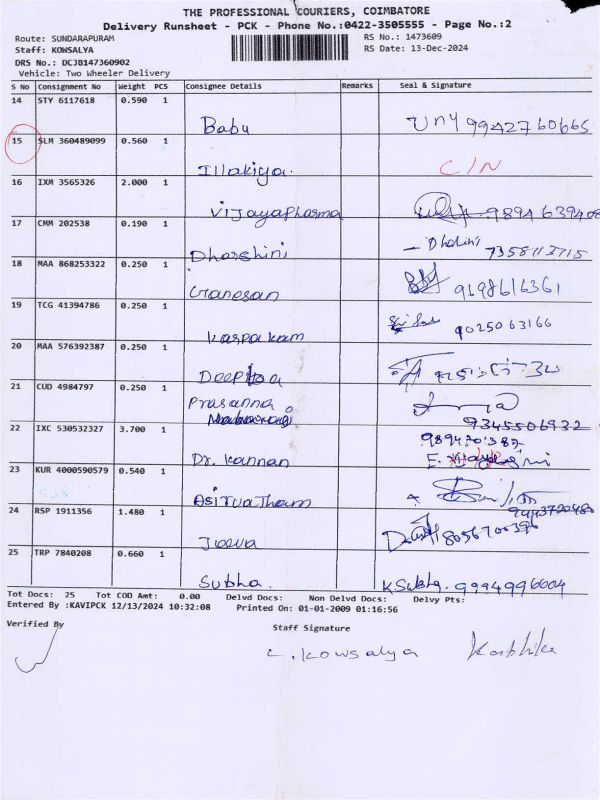 THE PROFESSIONAL COURIERS, COIMBATORE
Delivery Runsheet - PCK - Phone No.:0422-3505555 - Page No.:2
Route: SUNDARAPURAM RS No.: 1473609
Staff: KOWSALYA RS Date: 13-Dec-2024
DRS No.: DCJB147360902
Vehicle: Two Wheeler Delivery
S No Consignment No Weight PCS Consignee Details Remarks Seal & Signature
14 STY 6117618 0.590 1
Babu Uny 9942760665
15 SLM 360489099 0.560 1 C/N
Illakiya.
16 IXM 3565326 2.000 1
Vijayapharma 9894639408
17 CMM 202538 0.190 1
Dharshini 7358112715
18 MAA 868253322 0.250 1
Ganesan 9698616361
19 TCG 41394786 0.250 1
Kaspakam 9025063166
20 MAA 576392387 0.250 1
Deepa
21 CUD 4984797 0.250 1 Prasanna
9345506932
22 IXC 530532327 3.700 1
Dr. Kannan E.
23 KUR 4000590579 0.540 1
Asirvatham 9443720480
24 RSP 1911356 1.480 1
Jeeva 8056700396
25 TRP 7840208 0.660 1
Subha. K.Subha. 9994996604
Tot Docs: 25 Tot COD Amt: 0.00 Delvd Docs: Non Delvd Docs: Delvy Pts:
Entered By :KAVIPCK 12/13/2024 10:32:08 Printed On: 01-01-2009 01:16:56
Verified By Staff Signature
Kowsalya Karthika